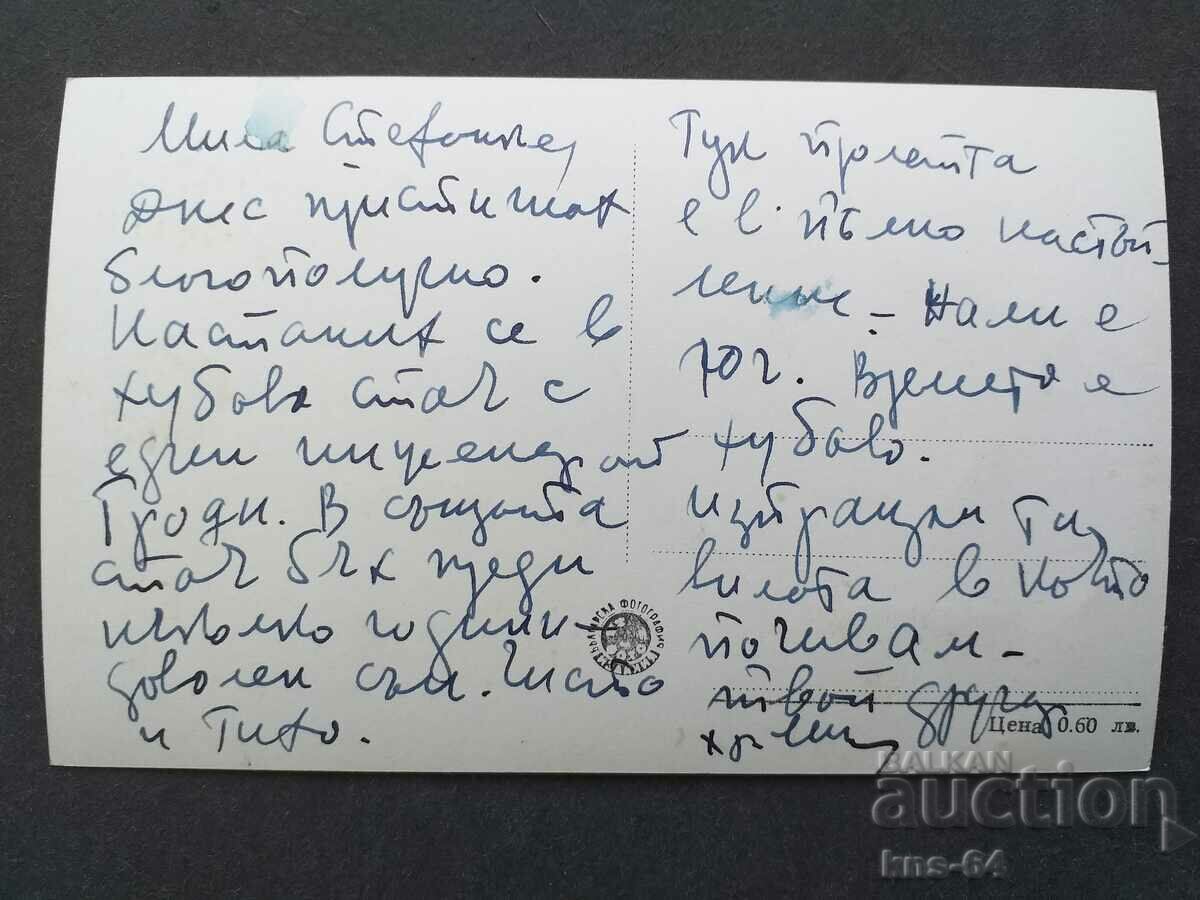 Мила Стефанке,
Днес пристигнах
благополучно.
Настаних се в
хубава стая с
един инженер от
В същата
стая бях преди
няколко години –
доволен съм. Чисто
и тихо.
Тук пролетта
е в пълно настъп-
ление – нали е
юг. Времето е
хубаво.
Изпращам ти
вилата в която
почивам –
твой другар
БЪЛГАРСКА ФОТОГРАФИЯ
Цена 0.60 лв.
BALKAN
auction
kns-64